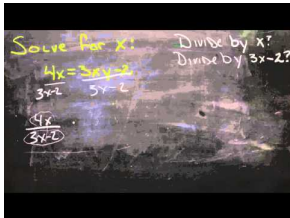 Solve for x:
Divide by x?
Divide by 3x-2?
4x = 3xy-2
3x-2
4x
3x-2